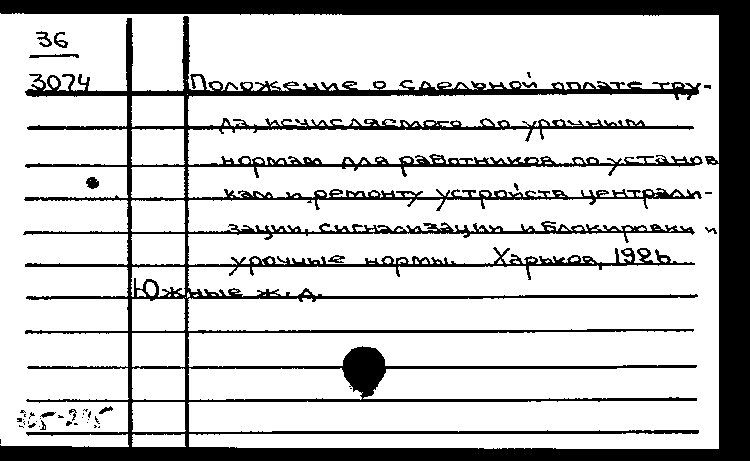 36
3074 Положение о сдельной оплате тру-
да, исчисляемого по урочным
нормам для работников по установ
кам и ремонту устройств централи-
зации, сигнализации и блокировки и
урочные нормы. Харьков, 1926.
Южные ж.д.